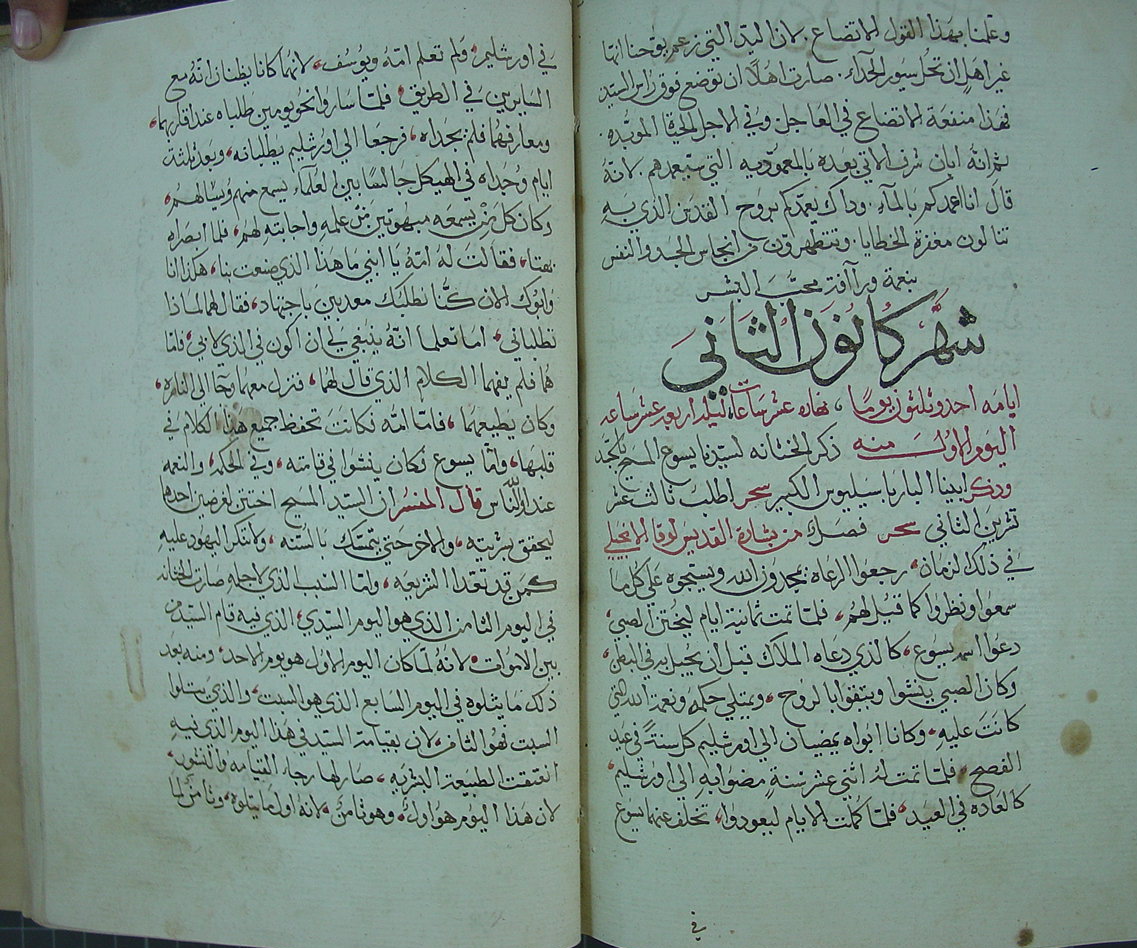 وعلمنا بهذا القول الاتضاع. لان اليد التي زعم يوحنا انها
غير اهل ان تحل سيور الحذاء. صارت اهلًا ان توضع فوق راس السيد
فهذا منفعة الاتضاع في العاجل وفي الاجل الحياة الموبده.
ثم انه ابان شرف الاتي بعده بالمعموديه التي سيعمدهم. لانه
قال انا اعمدكم بالمآء. وذاك يعمدكم بروح القدس الذي به
تنالون مغفرة الخطايا. وتتطهرون من انجاس الجسد والنفس
بنعمة ورآفة محب البشر
شهر كانون الثاني
ايامه احد وثلثون يومًا، نهاره عشر ساعات وليله اربع عشر ساعه
اليوم الاول منه ذكر الختانه لسيدنا يسوع المسيح بالجسد
وذكر ابينا البار باسيليوس الكبير سحر اطلب ثالث عشر
تشرين الثاني سحر فصل من بشارة القديس لوقا الانجيلي
في ذلك الزمان، رجعوا الرعاه يمجدون الله ويسبحوه علي كل ما
سمعوا ونظروا كما قيل لهم، فلما تمت ثمانية ايام ليختن الصبي،
دعوا اسمه يسوع، كالذي دعاه الملاك قبل ان يحبل به في البطن،
وكان الصبي ينشوا ويتقوا بالروح، ويمتلي حكمه ونعمة الله التي
كانت عليه، وكانا ابواه يمضيان الي اورشليم كل سنة في عيد
الفصح، فلما تمت له اثني عشر سنة مضوا به الي اورشليم،
كالعاده في العيد، فلما كملت الايام ليعودوا، تخلف عنهما يسوع
في
في اورشليم، ولم تعلم امه ويوسف، لانهما كانا يظنان انه مع
السايرين في الطريق، فلما ساروا نحو يومين طلباه عند اقاربهما،
ومعارفيهما فلم يجداه، فرجعا الي اورشليم يطلبانه، وبعد ثلثة
ايام وجداه في الهيكل جالسًا بين العلماء يسمع منهم ويسالهم،
وكان كل من يسمعه مبهوتين من علمه واجابته لهم، فلما ابصراه
بهتا، فقالت له امه يا ابني ما هذا الذي صنعت بنا، هكذا انا
وابوك الان كنا نطلبك معذبين باجتهاد، فقال لهما لماذا
تطلباني، اما تعلما انه ينبغي لي ان اكون في الذي لابي، فاما
هما فلم يفهما الكلام الذي قال لهما، فنزل معهما وجا الي الناصره،
وكان يطيعهما، فاما امه فكانت تحفظ جميع هذا الكلام في
قلبها، واما يسوع فكان ينشوا في قامته، وفي الحكمه والنعمه
عند الله والناس قال المفسر ان السيد المسيح اختتن لغرضين احدها
ليحقق بشريته، والاخر حتي يتمسك بالسنه، ولا تنكر اليهود عليه
كمن قد تعدا الشريعه، واما السبب الذي لاجله صارت الختانه
في اليوم الثامن الذي هو اليوم السيدي، الذي فيه قام السيد من
بين الاموات، لانه لما كان اليوم الاول هو يوم الاحد، ومنه يعد
ذلك ما يتلوه في اليوم السابع الذي هو السبت، والذي يتلوا
السبت فهو الثامن، لان بقيامة السيد في هذا اليوم الذي فيه
انعتقت الطبيعة البشريه، صار لها رجاء القيامه والنشور،
لان هذا اليوم هو اول، وهو ثامن، لانه اول ما يتلوه، وثامن لما